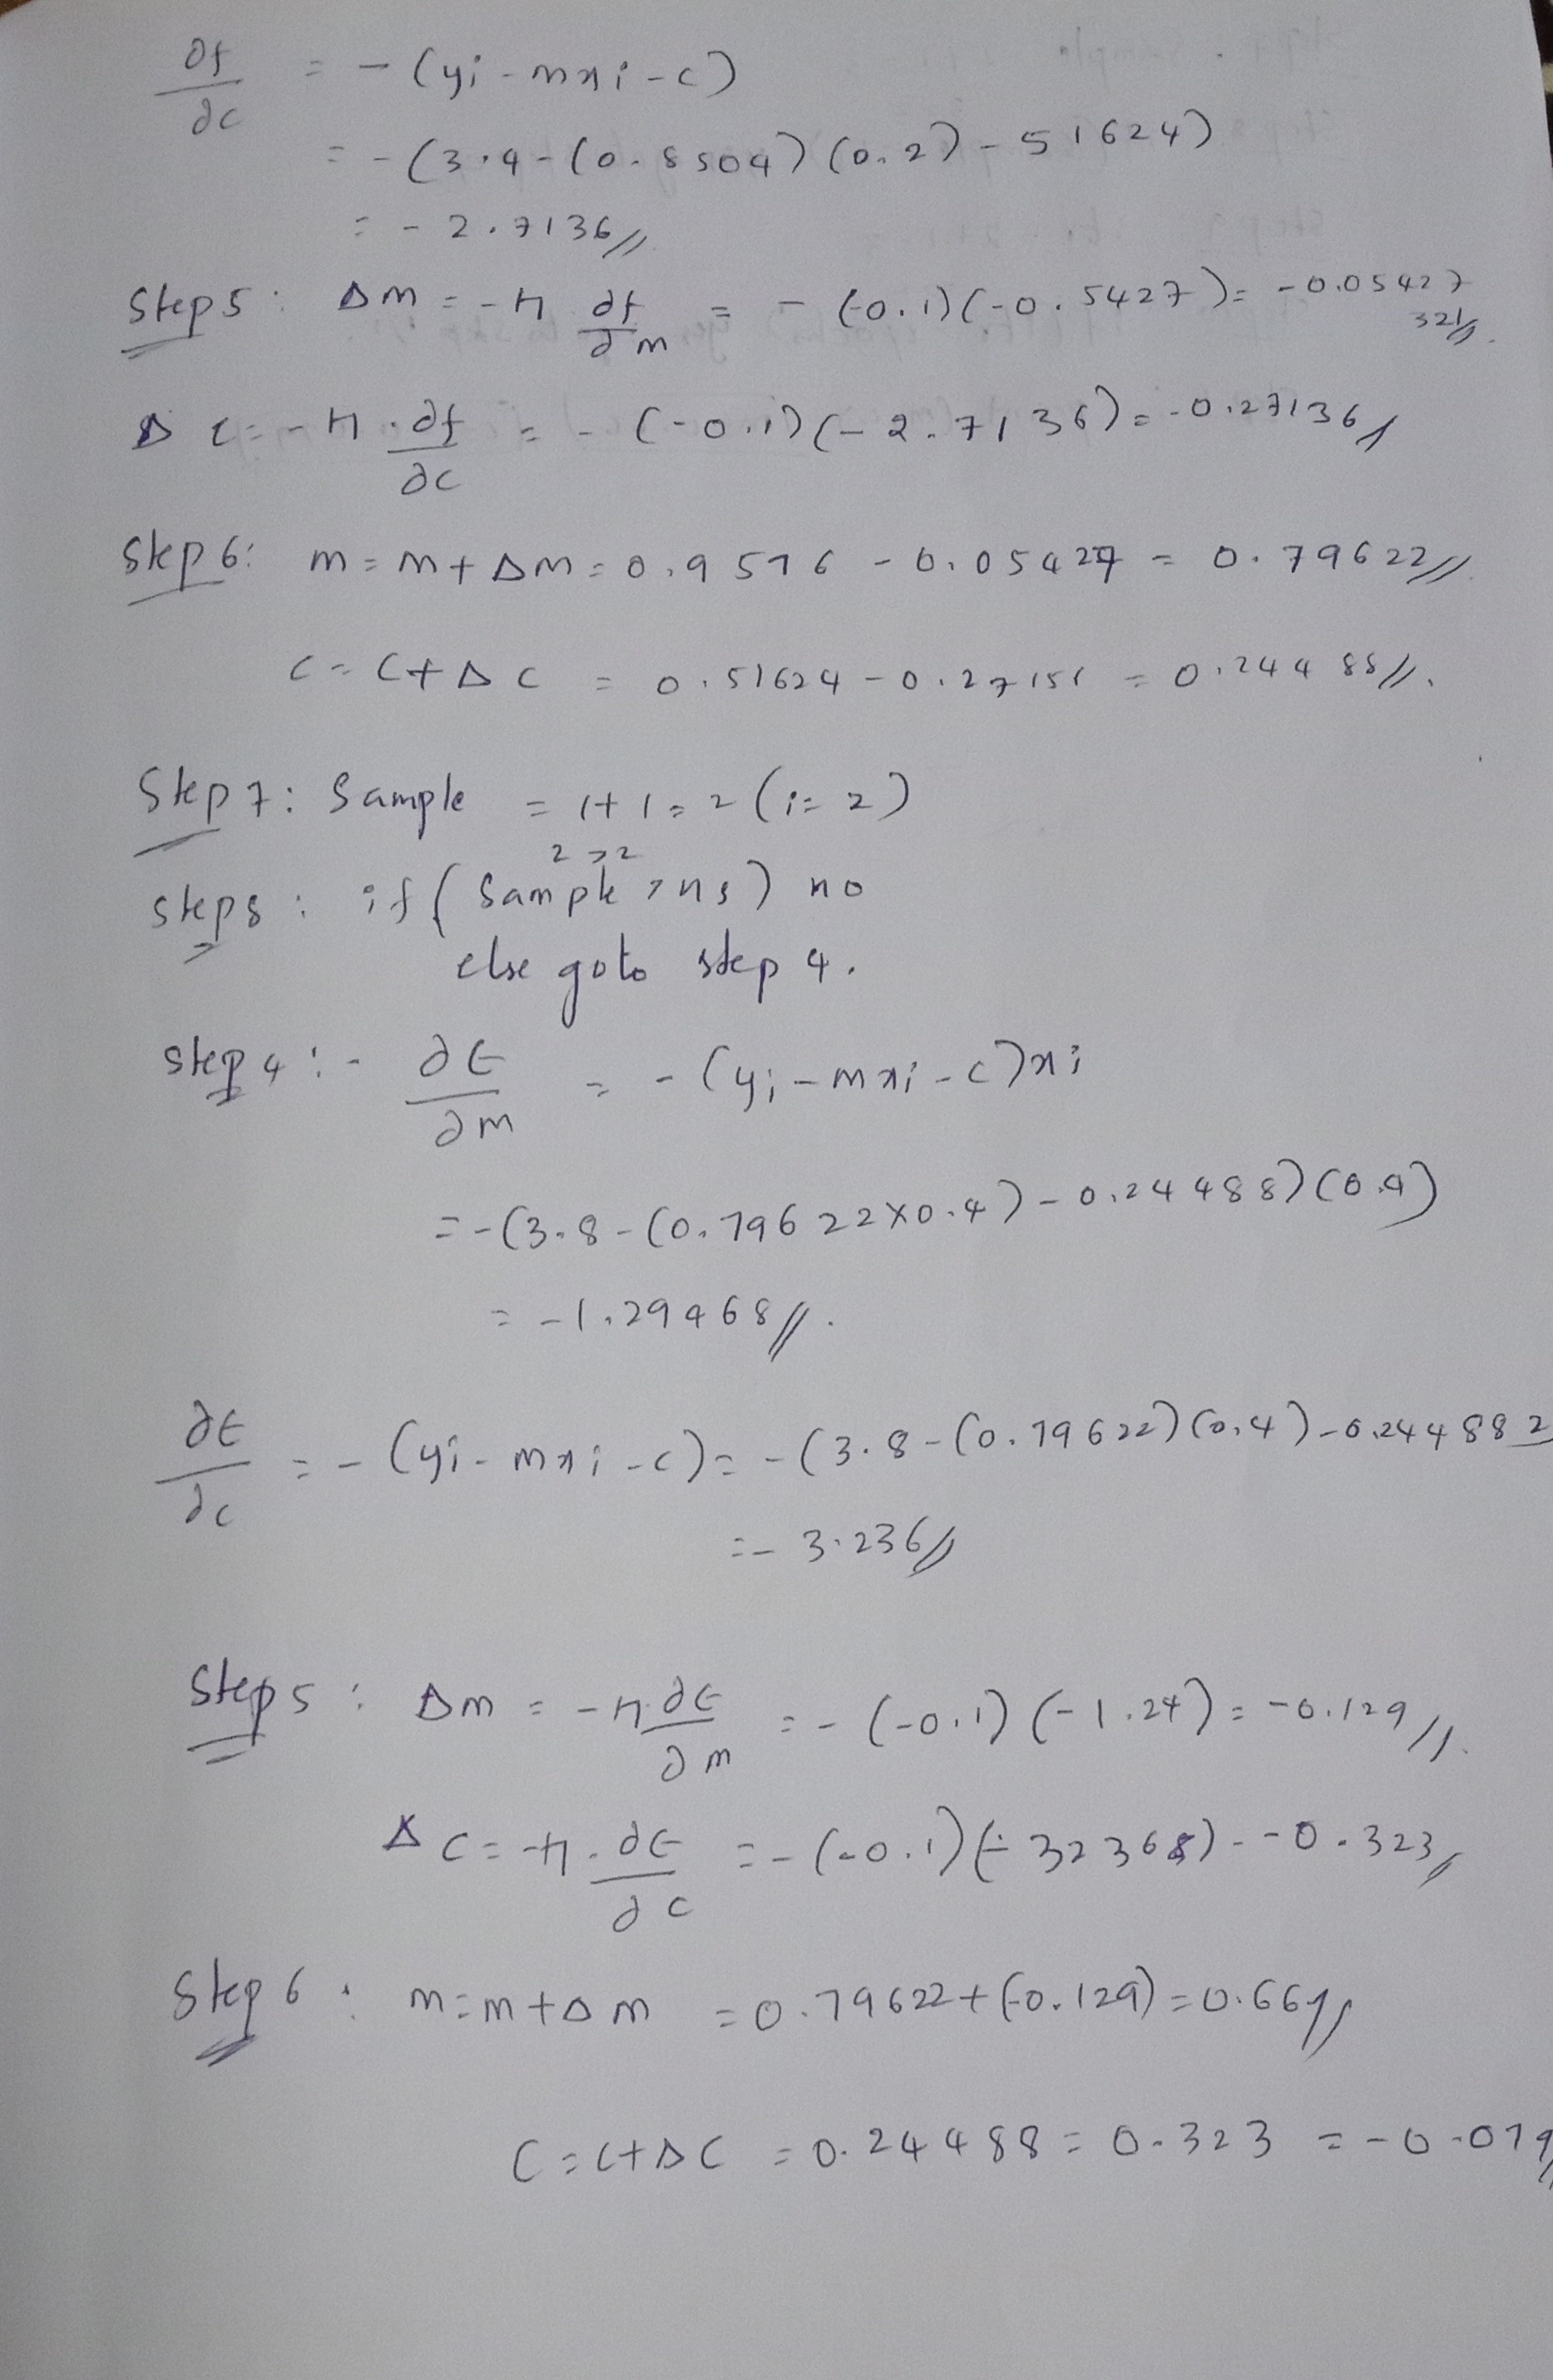 ∂f/∂c = - (yi - mxi - c)
= - (3.4 - (0.8504) (0.2) - 51624)
= - 2.7136//
Step 5: Δm = - η ∂f/∂m = - (-0.1) (-0.5427) = -0.05427
321//.
Δ c = - η . ∂f/∂c = - (-0.1) (-2.7136) = -0.27136//
Step 6: m = m + Δm = 0.9516 - 0.05427 = 0.79622//.
c = c + Δ c = 0.51624 - 0.27151 = 0.24488//.
Step 7: Sample = 1 + 1 = 2 (i = 2)
2 > 2
Step 8: if (Sample > ns) no
else goto step 4.
step 4 :- ∂E/∂m = - (yi - mxi - c) xi
= - (3.8 - (0.79622 x 0.4) - 0.24488) (0.4)
= - 1.29468//.
∂E/∂c = - (yi - mxi - c) = - (3.8 - (0.79622) (0.4) - 0.244882
= - 3.236//
Step 5 : Δm = - η . ∂E/∂m = - (-0.1) (-1.24) = -0.129//.
Δ c = - η . ∂E/∂c = - (-0.1) (- 32368) = -0.323//
Step 6 : m = m + Δ m = 0.79622 + (-0.129) = 0.667//
C = C + Δ C = 0.24488 = 0.323 = - 0.079//